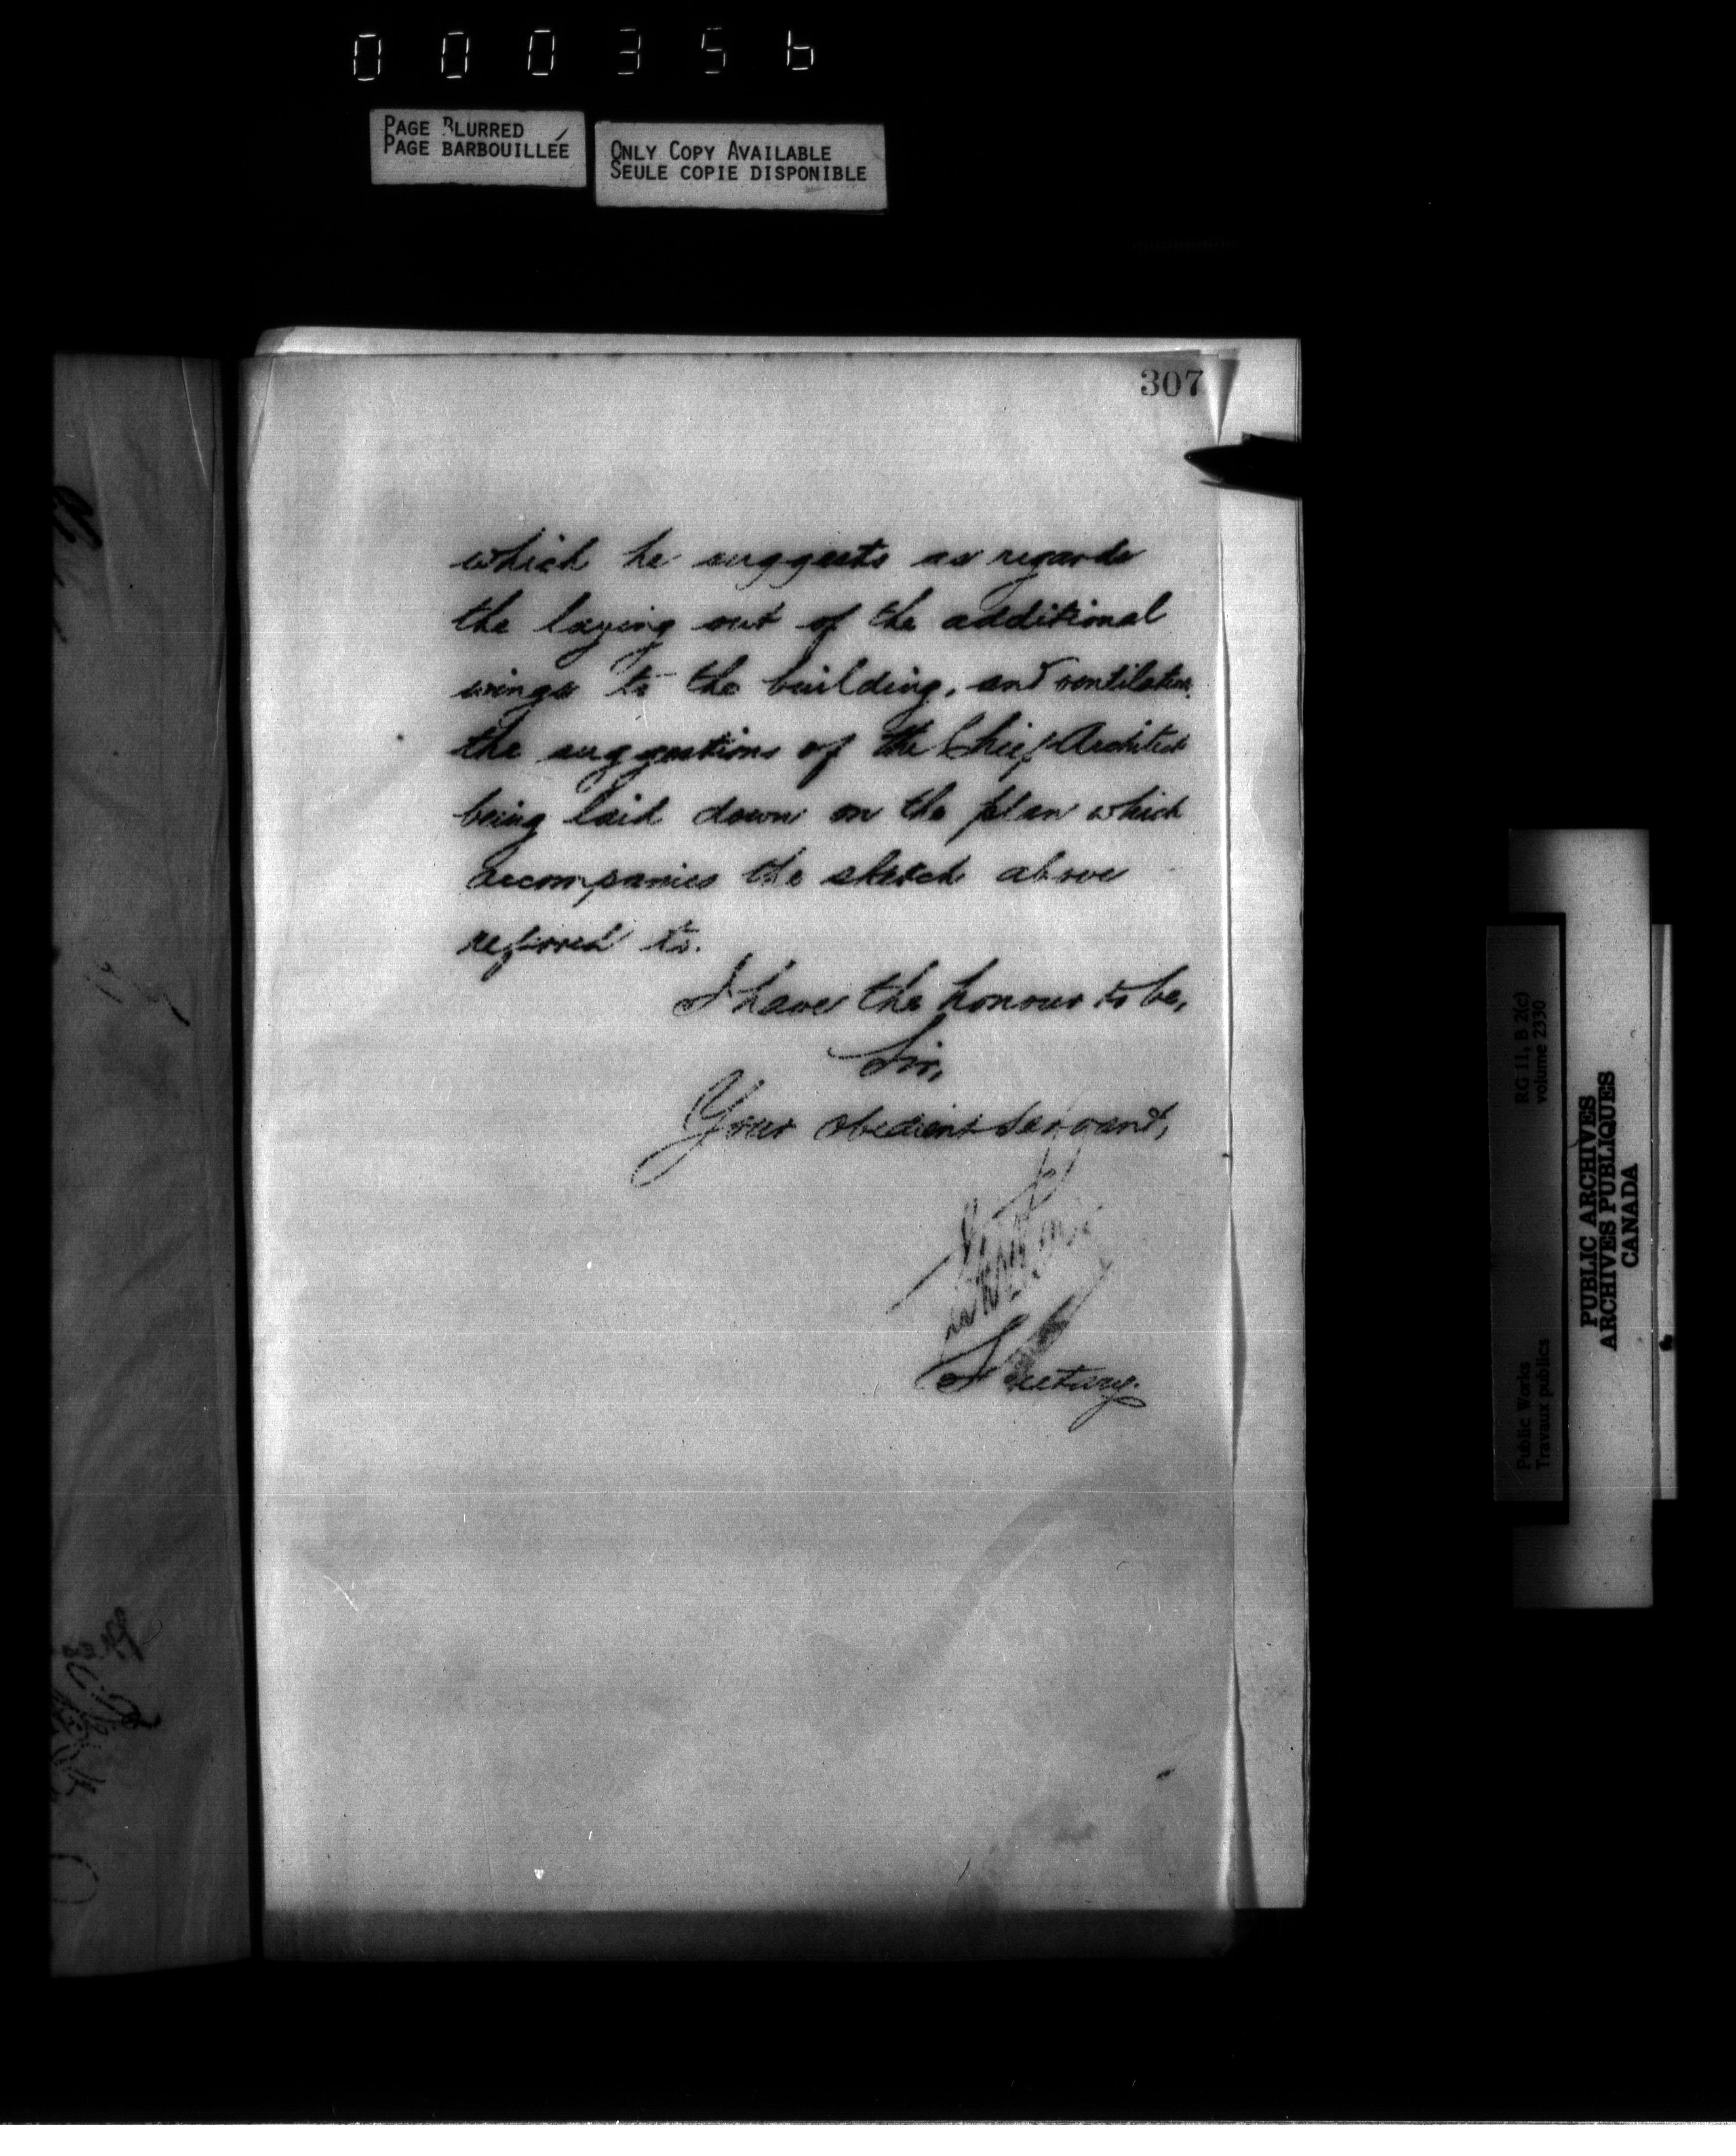 000356
PAGE BLURRED
PAGE BARBOUILLÉE
ONLY COPY AVAILABLE
SEULE COPIE DISPONIBLE
307
which he suggests as regards
the laying out of the additional
wings to the building, and ventilation,
the suggestions of the Chief Architect
being laid down on the plan which
accompanies the sketch above
referred to.
I have the honour to be,
Sir,
Your obedient servant,
Secretary.
RG 11, B 2(c)
volume 2330
Public Works
Travaux publics
PUBLIC ARCHIVES
ARCHIVES PUBLIQUES
CANADA